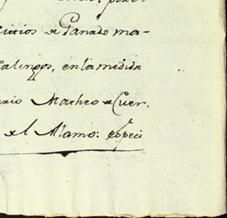 icios de Ganado ma-
alengos, en la medida
ario Matheo de Cuer
del Alamo: